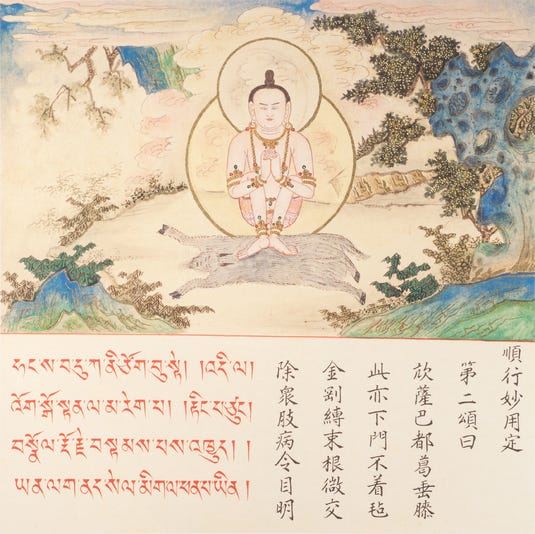 ཧང་ས་བ་དུ་ཀ་ནི་ཙོག་བུ་སྟེ། །འདི་ལ།
འོག་སྒོ་སྟན་ལ་མ་རེག་པ། །རྟིང་པ་ཙུང་
བསྣོལ་རྡོ་རྗེ་བསྡམས་པས་འཁྱུད། །
ཡན་ལག་ནད་སེལ་མིག་ལ་ཕན་པ་ཡིན།
順行妙用定
第二頌曰
薩巴都葛垂膝
此亦下門不着毡
金剛縛束根微交
除衆肢病令目明